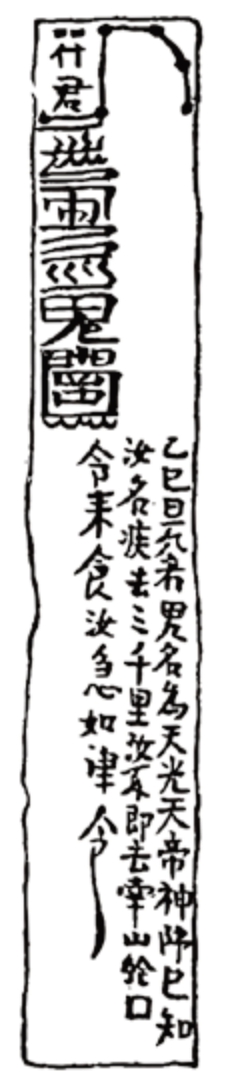 符君
乙巳日死者鬼名為天光天帝神師已知
汝名疾去三千里汝不即去南山給口
令来食汝急如律令